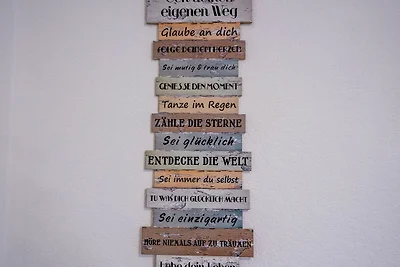 eigenen Weg
Glaube an dich
FOLGE DEINEM HERZEN
Sei mutig & trau dich
GENIESSE DEN MOMENT
Tanze im Regen
ZÄHLE DIE STERNE
Sei glücklich
ENTDECKE DIE WELT
Sei immer du selbst
TU WAS DICH GLÜCKLICH MACHT
Sei einzigartig
HÖRE NIEMALS AUF ZU TRÄUMEN
Lebe dein Leben